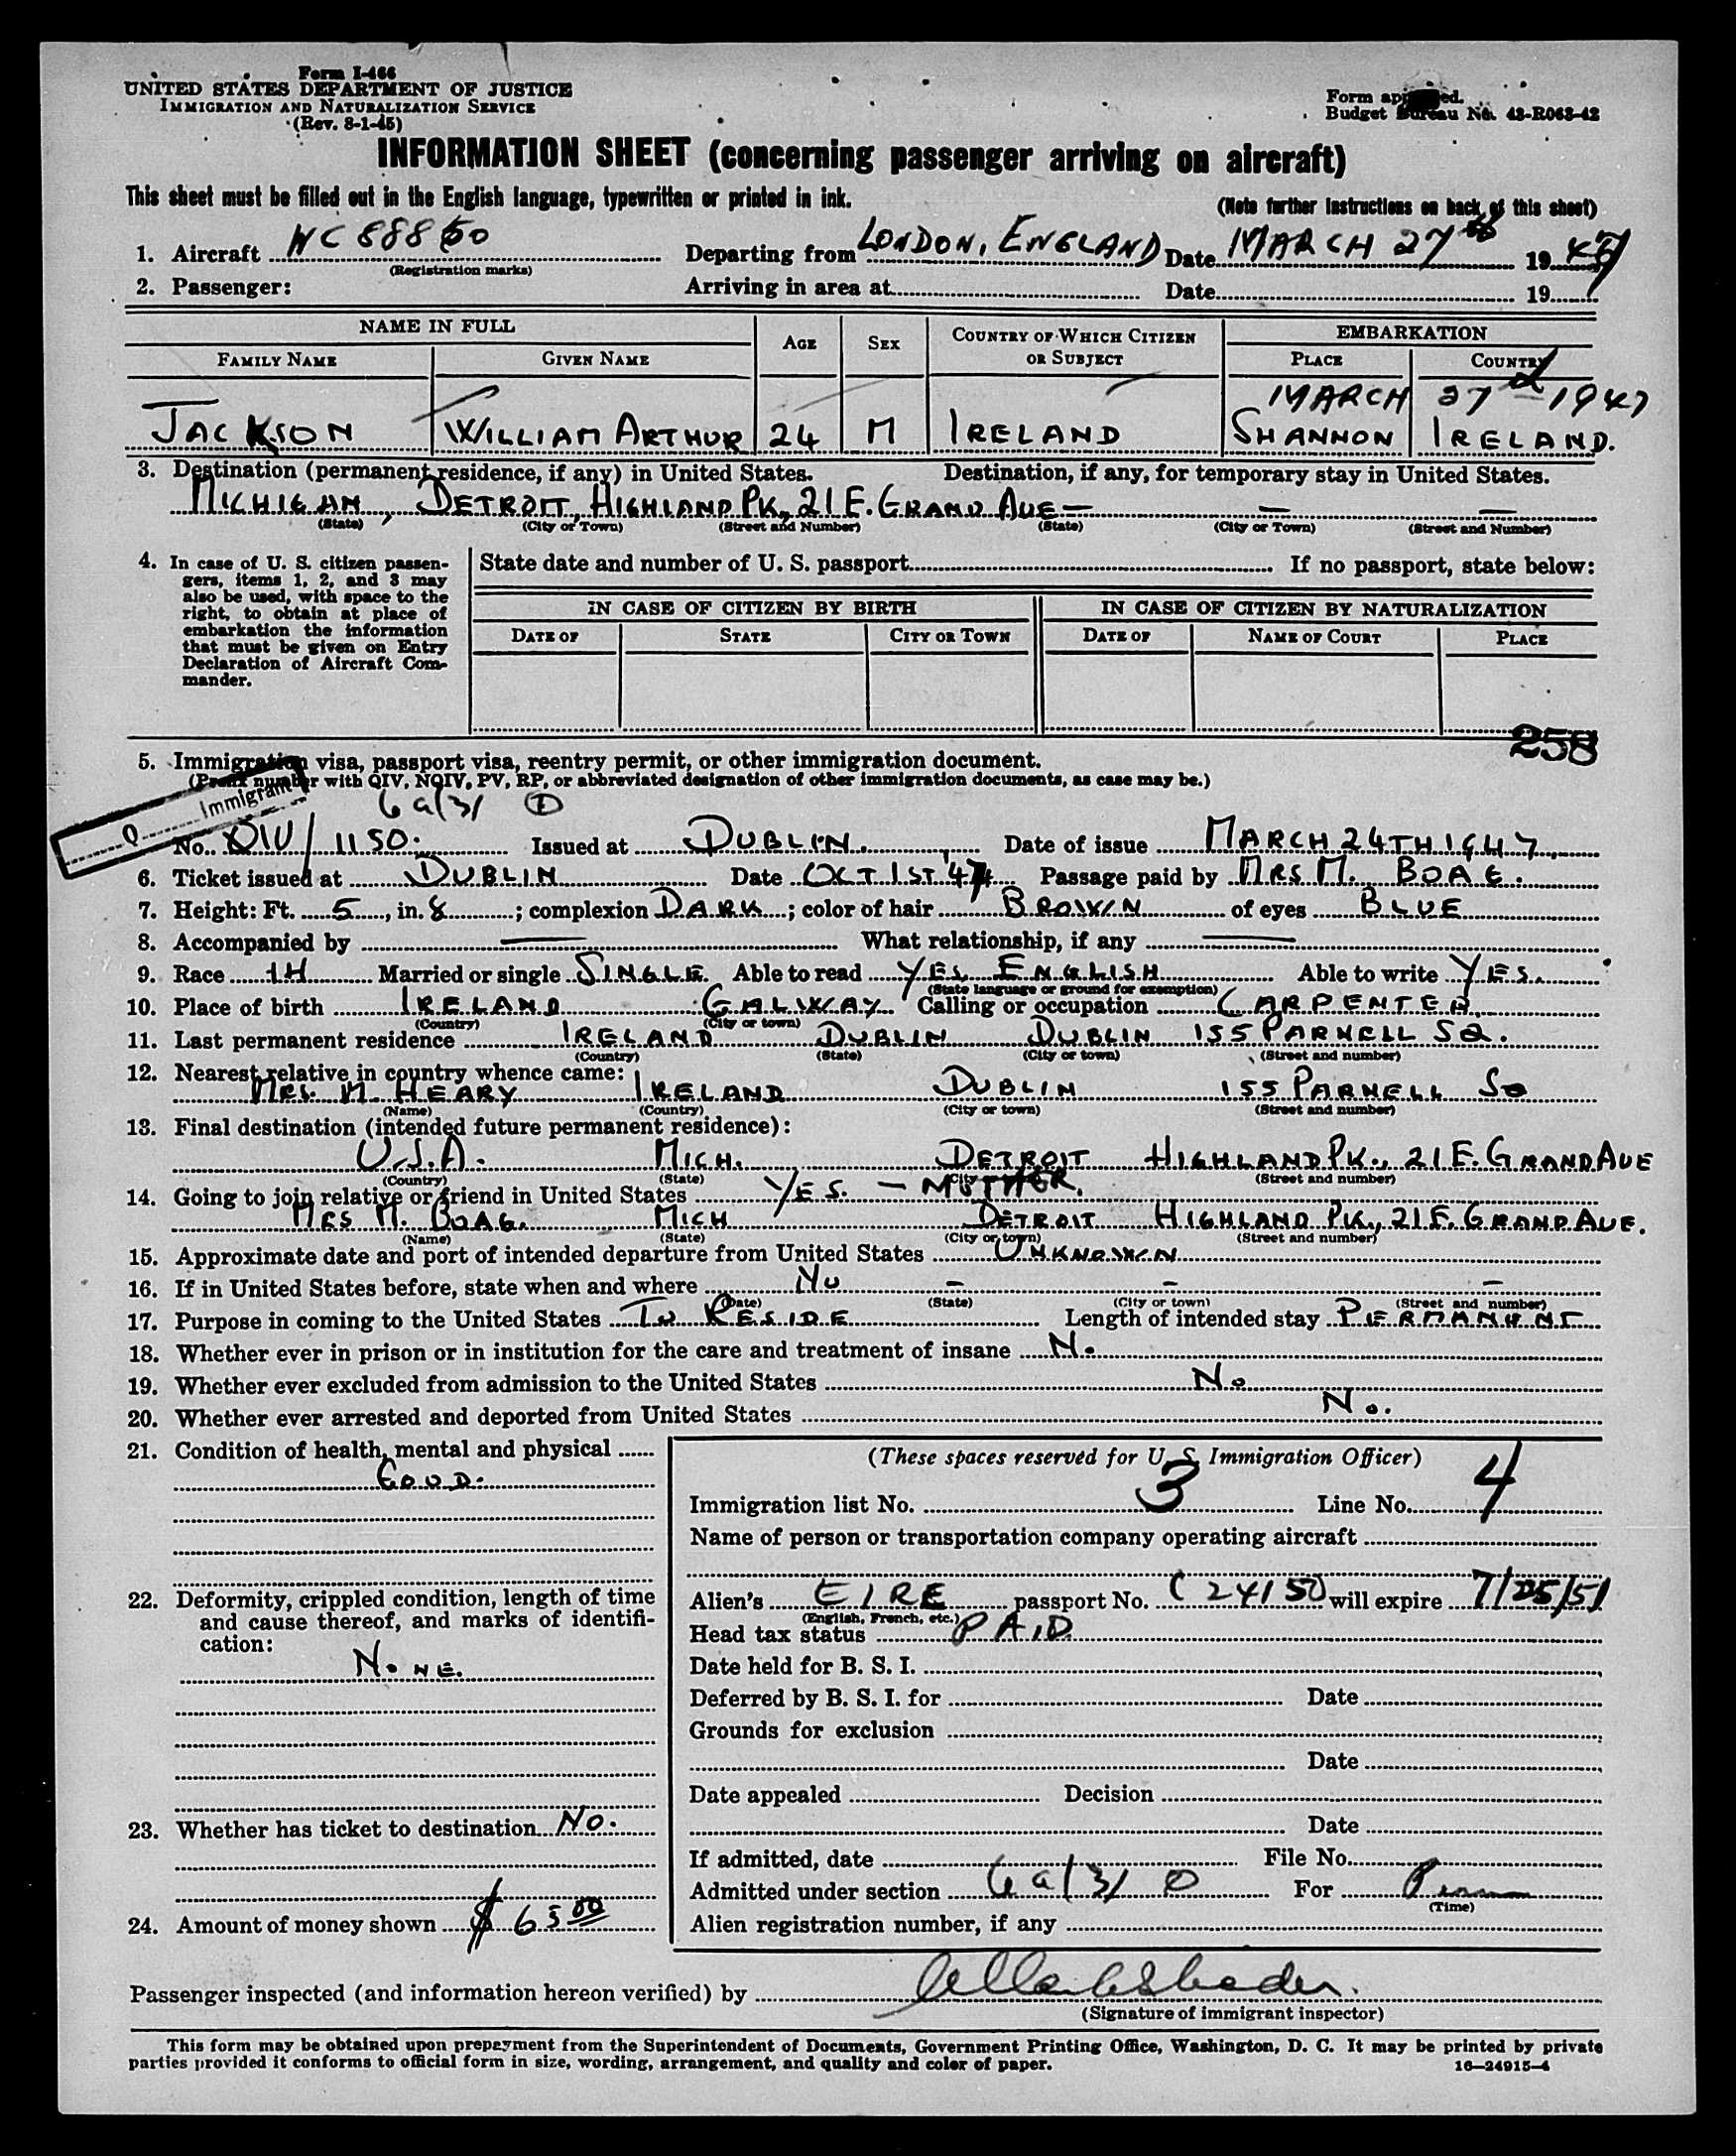 Form I-466
UNITED STATES DEPARTMENT OF JUSTICE
IMMIGRATION AND NATURALIZATION SERVICE
(Rev. 8-1-45)
Form approved.
Budget Bureau No. 43-R063-42
INFORMATION SHEET (concerning passenger arriving on aircraft)
This sheet must be filled out in the English language, typewritten or printed in ink.
(Note further instructions on back of this sheet)
1. Aircraft NC 88860 Departing from LONDON, ENGLAND Date MARCH 27th 1947
(Registration marks)
2. Passenger: Arriving in area at Date 19
NAME IN FULL AGE SEX COUNTRY OF WHICH CITIZEN OR SUBJECT EMBARKATION
FAMILY NAME GIVEN NAME PLACE COUNTRY
MARCH 27 1947
JACKSON WILLIAM ARTHUR 24 M IRELAND SHANNON IRELAND.
3. Destination (permanent residence, if any) in United States. Destination, if any, for temporary stay in United States.
MICHIGAN, DETROIT, HIGHLAND PK, 21 E. GRAND AVE — — —
(State) (City or Town) (Street and Number) (State) (City or Town) (Street and Number)
4. In case of U. S. citizen passen-
gers, items 1, 2, and 3 may
also be used, with space to the
right, to obtain at place of
embarkation the information
that must be given on Entry
Declaration of Aircraft Com-
mander.
State date and number of U. S. passport If no passport, state below:
IN CASE OF CITIZEN BY BIRTH IN CASE OF CITIZEN BY NATURALIZATION
DATE OF STATE CITY OR TOWN DATE OF NAME OF COURT PLACE
258
5. Immigration visa, passport visa, reentry permit, or other immigration document.
(Prefix number with QIV, NQIV, PV, RP, or abbreviated designation of other immigration documents, as case may be.)
Q Immigrant
6a(3)
No. QIV/1150. Issued at DUBLIN. Date of issue MARCH 24TH 1947
6. Ticket issued at DUBLIN Date OCT 1ST 47 Passage paid by MRS M. BOAG.
7. Height: Ft. 5, in. 8; complexion DARK; color of hair BROWN of eyes BLUE
8. Accompanied by — What relationship, if any —
9. Race IH Married or single SINGLE. Able to read YES ENGLISH Able to write YES.
(State language or ground for exemption)
10. Place of birth IRELAND GALWAY Calling or occupation CARPENTER
(Country) (City or town)
11. Last permanent residence IRELAND DUBLIN DUBLIN 155 PARNELL SQ.
(Country) (State) (City or town) (Street and number)
12. Nearest relative in country whence came:
MRS. M. HEARY IRELAND DUBLIN 155 PARNELL SQ
(Name) (Country) (City or town) (Street and number)
13. Final destination (intended future permanent residence):
U.S.A. MICH. DETROIT HIGHLAND PK., 21 E. GRAND AVE
(Country) (State) (City or town) (Street and number)
14. Going to join relative or friend in United States YES. — MOTHER.
MRS M. BOAG. MICH DETROIT HIGHLAND PK., 21 E. GRAND AVE.
(Name) (State) (City or town) (Street and number)
15. Approximate date and port of intended departure from United States UNKNOWN
16. If in United States before, state when and where NO — — —
(Date) (State) (City or town) (Street and number)
17. Purpose in coming to the United States TO RESIDE Length of intended stay PERMANENT
18. Whether ever in prison or in institution for the care and treatment of insane NO
19. Whether ever excluded from admission to the United States NO
20. Whether ever arrested and deported from United States NO.
21. Condition of health, mental and physical
GOOD.
22. Deformity, crippled condition, length of time
and cause thereof, and marks of identifi-
cation:
NONE.
23. Whether has ticket to destination NO.
24. Amount of money shown $ 65 00
(These spaces reserved for U. S. Immigration Officer)
Immigration list No. 3 Line No. 4
Name of person or transportation company operating aircraft
Alien's EIRE passport No. C 24150 will expire 7/25/51
(English, French, etc.)
Head tax status PAID
Date held for B. S. I.
Deferred by B. S. I. for Date
Grounds for exclusion
Date
Date appealed Decision
Date
If admitted, date File No.
Admitted under section 6a(3) For Perm
(Time)
Alien registration number, if any
Passenger inspected (and information hereon verified) by
(Signature of immigrant inspector)
This form may be obtained upon prepayment from the Superintendent of Documents, Government Printing Office, Washington, D. C. It may be printed by private
parties provided it conforms to official form in size, wording, arrangement, and quality and color of paper.
16—24915-4